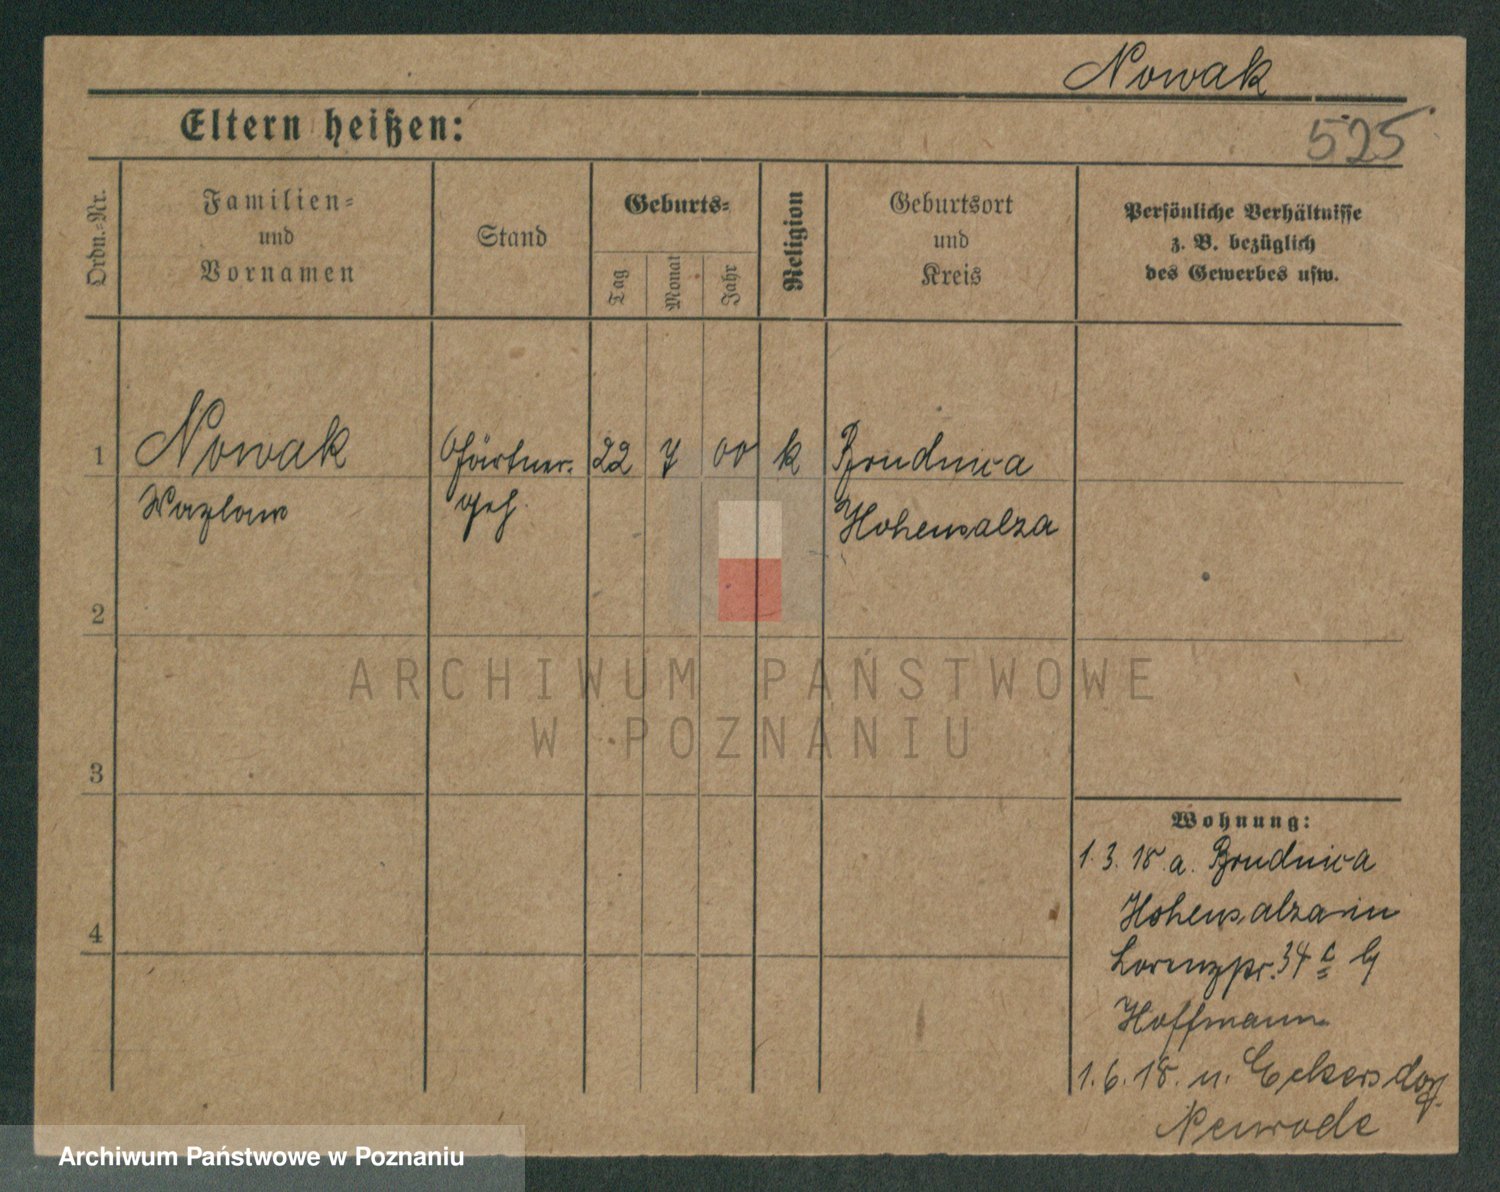 Nowak
525
Eltern heißen:
Ordn.-Nr.
Familien-
und
Vornamen
Stand
Geburts-
Tag
Monat
Jahr
Religion
Geburtsort
und
Kreis
Persönliche Verhältnisse
z. B. bezüglich
des Gewerbes usw.
1
Nowak
Gärtner-
22
7
00
k
Brudnica
Wazlaw
geh.
Hohensalza
2
ARCHIWUM PAŃSTWOWE
W POZNANIU
3
Wohnung:
1. 3. 18. a. Brudnica
Hohensalza in
4
Lorenzstr. 34 c
Hoffmann
1. 6. 18. n. Eckersdorf
Neurode
Archiwum Państwowe w Poznaniu